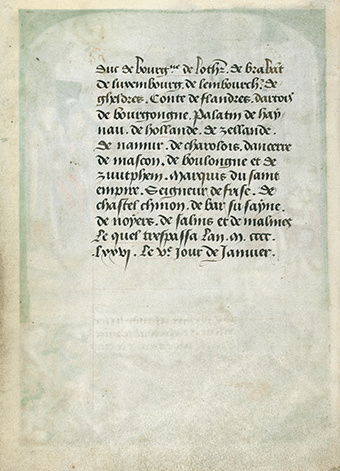 duc de bourg.ne de loth.r de brabāt
de luxembourg. de lembourch. de
gheldres. Conte de flandres. dartois
de bourgongne. Palatin de hay
nau. de hollande. de zellande.
de namur. de charolois. dancerre
de mascon. de boulongne et de
zuutphem. Marquis du saint
empire. Seigneur de frise. de
chastel chinon. de bar su sayne.
de noyers. de salins et de malines
Le quel trespassa lan. M. cccc.
lxxvi. Le v.e jour de Janvier.